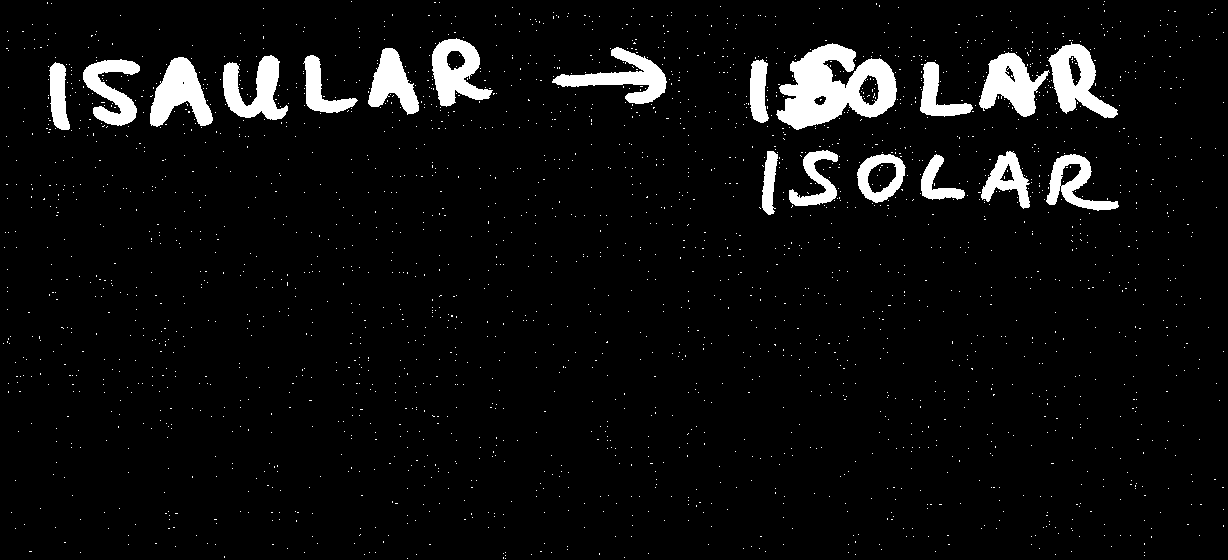 ISAULAR → ISOLAR
ISOLAR